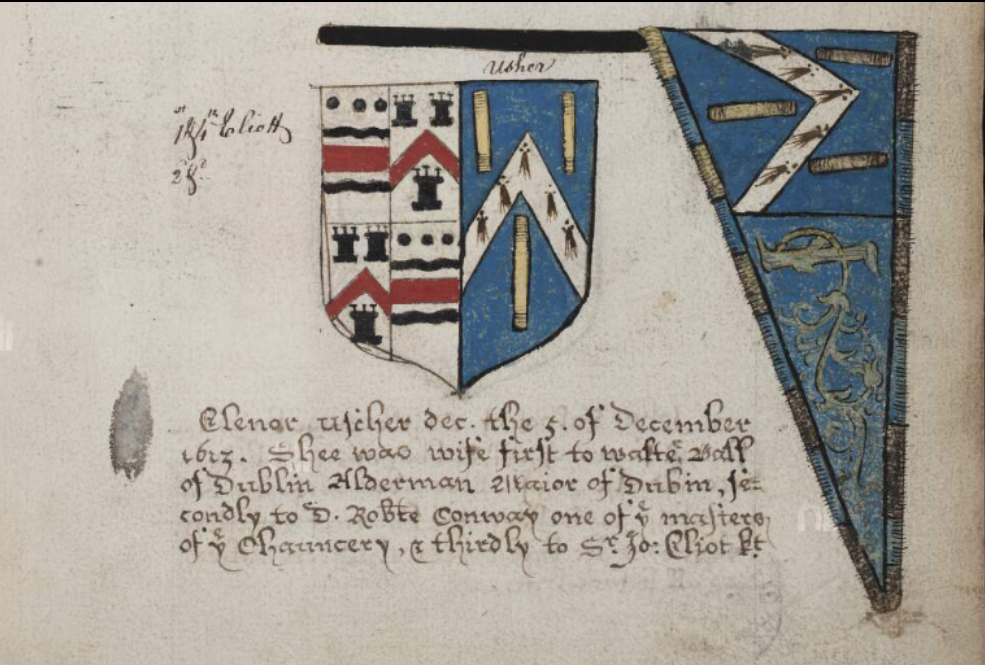 Usher
Eliott
Elenor Uscher dec. the 5. of December
1613. Shee was wife first to walte. Ball
of Dublin Alderman Maior of Dubin, se=
condly to D. Robte Conway one of yͤ masters
of yͤ Chauncery, & thirdly to Sr. Jo: Eliot kt